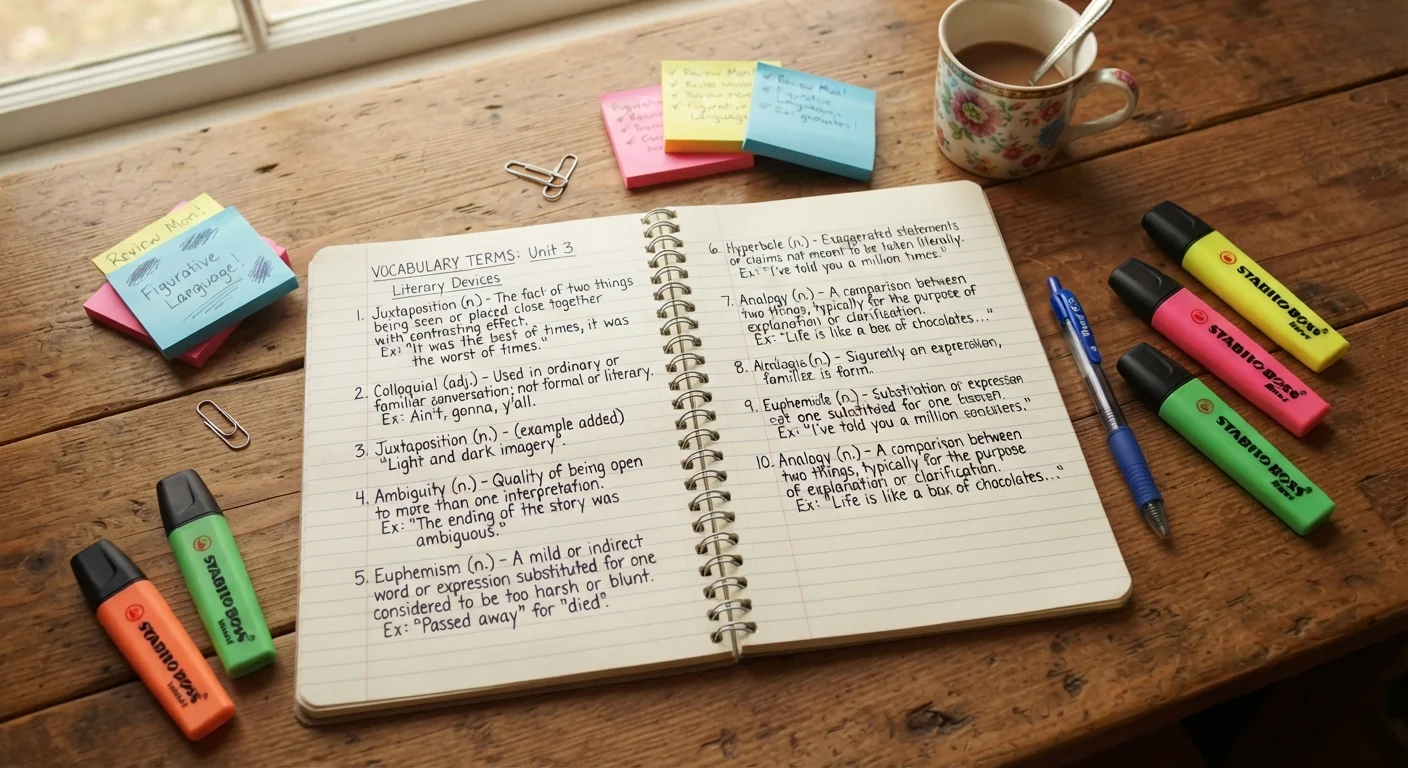 VOCABULARY TERMS: Unit 3
Literary Devices
1. Juxtaposition (n.) - The fact of two things
being seen or placed close together
with contrasting effect.
Ex: "It was the best of times, it was
the worst of times."
2. Colloquial (adj.) - Used in ordinary or
familiar conversation; not formal or literary.
Ex: Ain't, gonna, y'all.
3. Juxtaposition (n.) - (example added)
"Light and dark imagery".
4. Ambiguity (n.) - Quality of being open
to more than one interpretation.
Ex: "The ending of the story was
ambiguous."
5. Euphemism (n.) - A mild or indirect
word or expression substituted for one
considered to be too harsh or blunt.
Ex: "Passed away" for "died".
6. Hyperbole (n.) - Exaggerated statements
or claims not meant to be taken literally.
Ex: "I've told you a million times."
7. Analogy (n.) - A comparison between
two things, typically for the purpose of
explanation or clarification.
Ex: "Life is like a box of chocolates..."
8. (n.) - an expression,
is form.
9. (n.) - Substitution or expression
one for one
Ex: "I've told you a million
10. Analogy (n.) - A comparison between
two things, typically for the purpose
of explanation or clarification.
Ex: "Life is like a box of chocolates..."
Review Mon!
Figurative
Language!
Review Mon!
Language
Review Mon!
STABILO BOSS
STABILO BOSS
STABILO BOSS
STABILO BOSS
STABILO BOSS